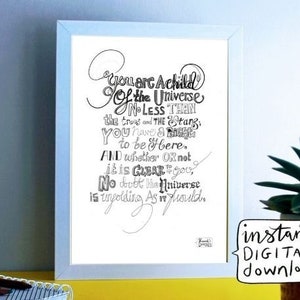 "You are a child
Of the Universe
No Less Than
the trees and The Stars,
You have a Right
to be Here.
And whether or not
it is Clear to you,
No doubt the Universe
Is unfolding As it should.
instant
DIGITAL
download